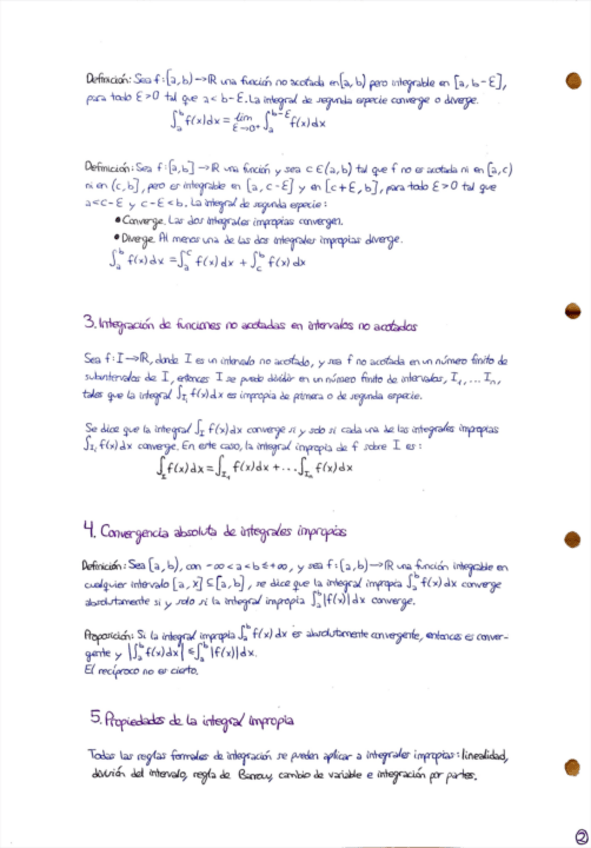 Definición: Sea f:[a,b)→ℝ una función no acotada en [a,b) pero integrable en [a, b-ε],
para todo ε>0 tal que a< b-ε. La integral de segunda especie converge o diverge.
∫ₐᵇ f(x)dx = lim_{ε→0⁺} ∫ₐ^{b-ε} f(x)dx
Definición: Sea f:[a,b]→ℝ una función y sea c∈(a,b) tal que f no es acotada ni en [a,c)
ni en (c,b], pero es integrable en [a, c-ε] y en [c+ε, b], para todo ε>0 tal que
a<c-ε y c-ε<b. La integral de segunda especie:
• Converge. Las dos integrales impropias convergen.
• Diverge. Al menos una de las dos integrales impropias diverge.
∫ₐᵇ f(x)dx = ∫ₐᶜ f(x)dx + ∫_cᵇ f(x)dx
3. Integración de funciones no acotadas en intervalos no acotados
Sea f: I→ℝ, donde I es un intervalo no acotado, y sea f no acotada en un número finito de
subintervalos de I, entonces I se puede dividir en un número finito de intervalos, I₁, ... Iₙ,
tales que la integral ∫_{Iᵢ} f(x)dx es impropia de primera o de segunda especie.
Se dice que la integral ∫_I f(x)dx converge si y solo si cada una de las integrales impropias
∫_{Iᵢ} f(x)dx converge. En este caso, la integral impropia de f sobre I es:
∫_I f(x)dx = ∫_{I₁} f(x)dx + ... ∫_{Iₙ} f(x)dx
4. Convergencia absoluta de integrales impropias
Definición: Sea [a,b), con -∞<a<b≤+∞, y sea f:[a,b)→ℝ una función integrable en
cualquier intervalo [a,x]⊆[a,b], se dice que la integral impropia ∫ₐᵇ f(x)dx converge
absolutamente si y solo si la integral impropia ∫ₐᵇ |f(x)|dx converge.
Proposición: Si la integral impropia ∫ₐᵇ f(x)dx es absolutamente convergente, entonces es conver-
gente y |∫ₐᵇ f(x)dx| ≤ ∫ₐᵇ |f(x)|dx.
El recíproco no es cierto.
5. Propiedades de la integral impropia
Todas las reglas formales de integración se pueden aplicar a integrales impropias: linealidad,
división del intervalo, regla de Barrow, cambio de variable e integración por partes.
2